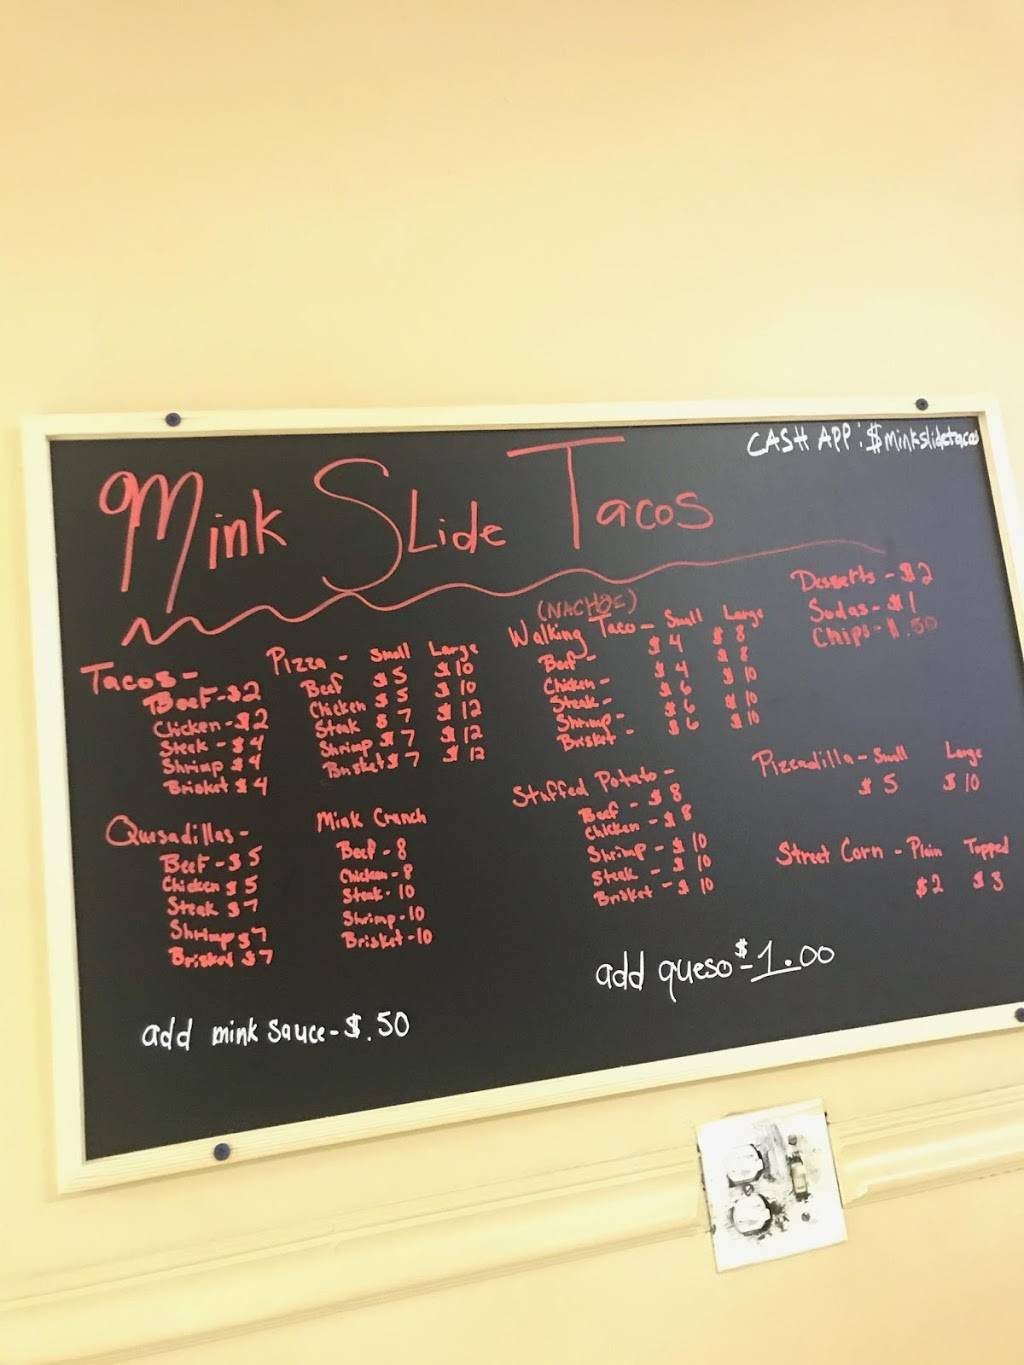 CASH APP: $minkslidetacos
Mink Slide Tacos
Tacos -
Beef - $2
Chicken - $2
Steak - $4
Shrimp $4
Brisket $4
Pizza - Small Large
Beef $5 $10
Chicken $5 $10
Steak $7 $12
Shrimp $7 $12
Brisket $7 $12
(NACHOE)
Walking Taco - Small Large
Beef - $4 $8
Chicken - $4 $8
Steak - $6 $10
Shrimp - $6 $10
Brisket - $6 $10
Desserts - $2
Sodas - $1
Chips - $.50
Quesadillas -
Beef - $5
Chicken $5
Steak $7
Shrimp $7
Brisket $7
Mink Crunch
Beef - 8
Chicken - 8
Steak - 10
Shrimp - 10
Brisket - 10
Stuffed Potato -
Beef - $8
Chicken - $8
Shrimp - $10
Steak - $10
Brisket - $10
Pizzadilla - Small Large
$5 $10
Street Corn - Plain Topped
$2 $3
add queso - $1.00
add mink sauce - $.50